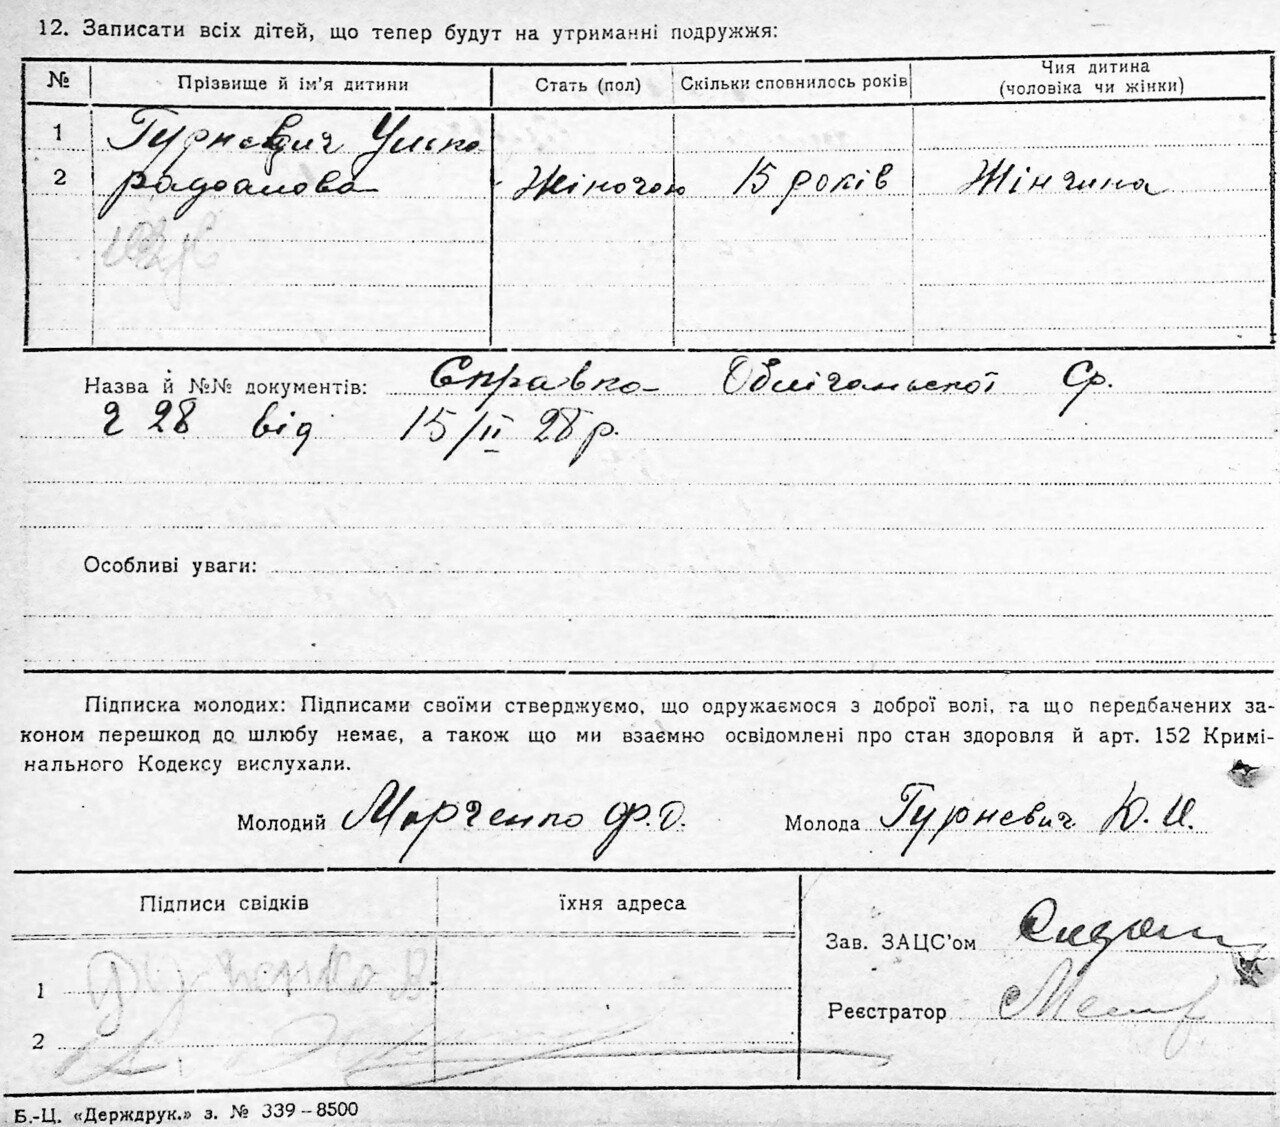 12. Записати всіх дітей, що тепер будут на утриманні подружжя:
№ Прізвище й ім'я дитини Стать (пол) Скільки сповнилось років Чия дитина (чоловіка чи жінки)
1 Гурневич
2 Жіночою 15 років Жінчина
Назва й №№ документів: Справка Ср.
28 від 15/II 28 р.
Особливі уваги:
Підписка молодих: Підписами своїми стверджуємо, що одружаємося з доброї волі, га що передбачених за-
коном перешкод до шлюбу немає, а також що ми взаємно освідомлені про стан здоровля й арт. 152 Кримі-
нального Кодексу вислухали.
Молодий Марченко Ф. О. Молода Гурневич Ю. И.
Підписи свідків їхня адреса
Зав. ЗАЦС'ом
1
Реєстратор
2
Б.-Ц. «Держдрук.» з. № 339–8500